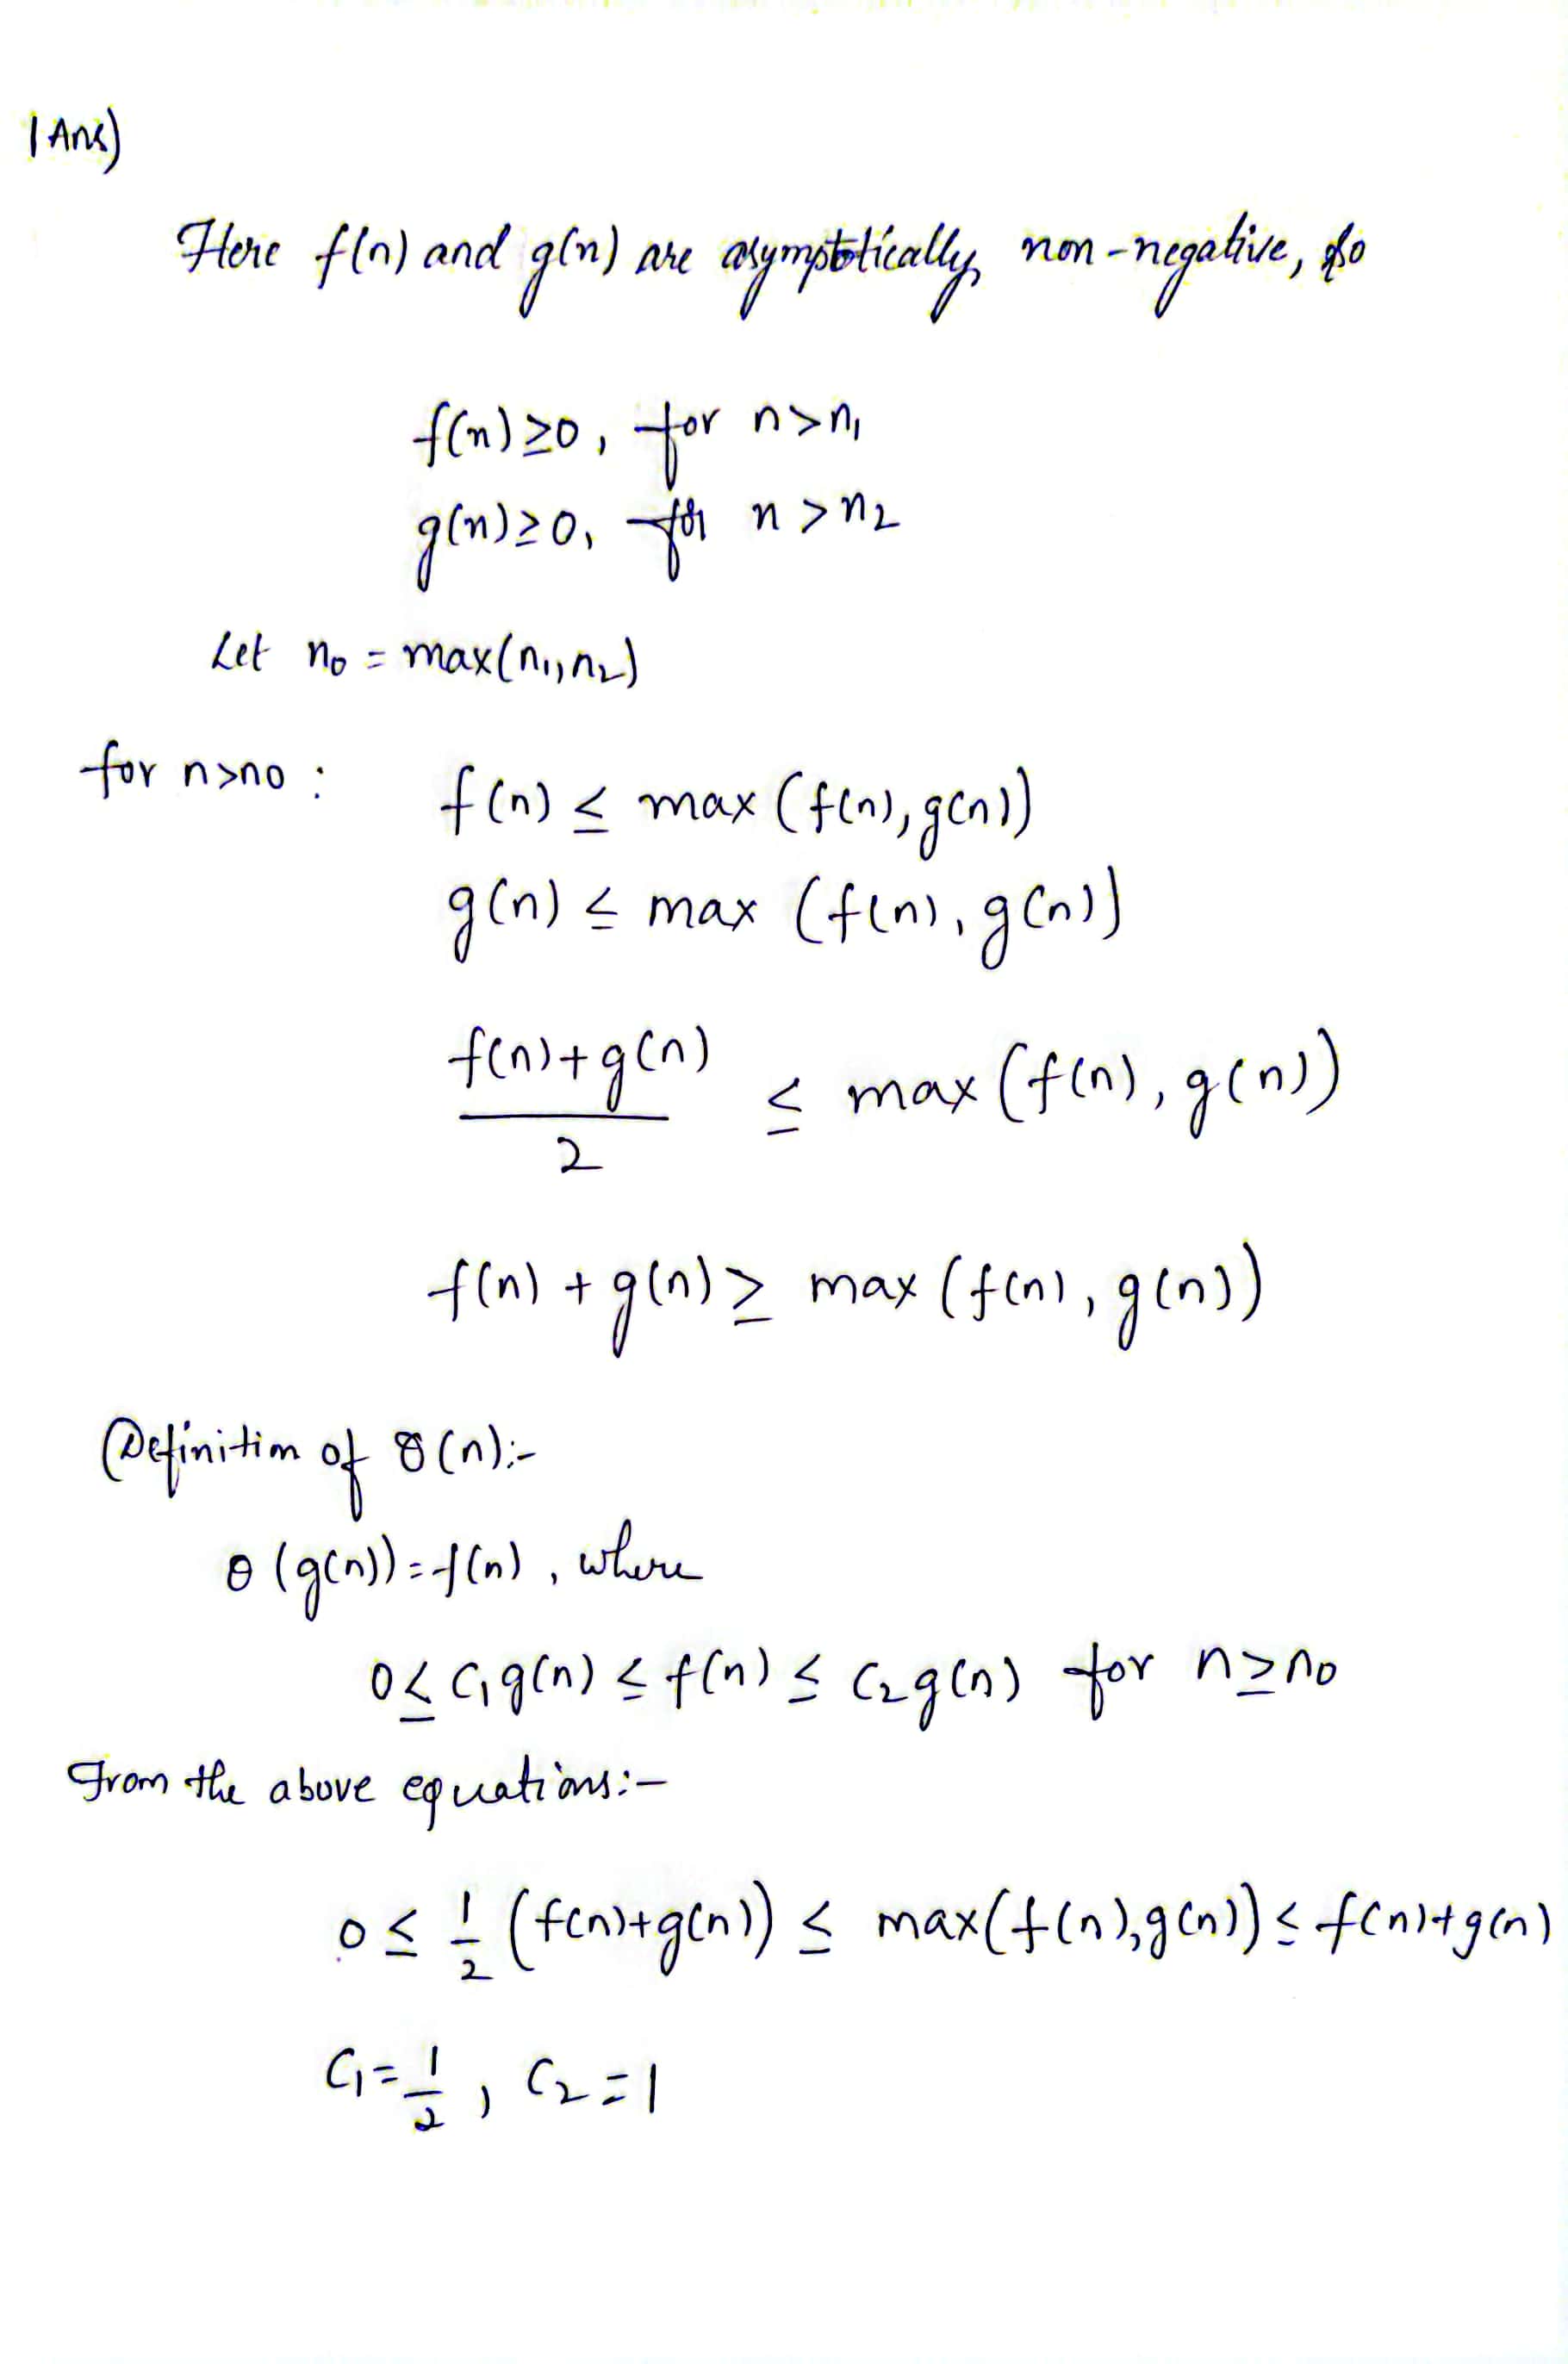 1 Ans)
Here f(n) and g(n) are asymptotically non-negative, so
f(n) ≥ 0, for n > n₁
g(n) ≥ 0, for n > n₂
Let n₀ = max(n₁, n₂)
for n > n₀ :
f(n) ≤ max (f(n), g(n))
g(n) ≤ max (f(n), g(n))
(f(n) + g(n)) / 2 ≤ max (f(n), g(n))
f(n) + g(n) ≥ max (f(n), g(n))
Definition of θ(n):-
θ(g(n)) = f(n), where
0 ≤ C₁g(n) ≤ f(n) ≤ C₂g(n) for n ≥ n₀
From the above equations:-
0 ≤ 1/2 (f(n)+g(n)) ≤ max(f(n), g(n)) ≤ f(n)+g(n)
C₁ = 1/2 , C₂ = 1